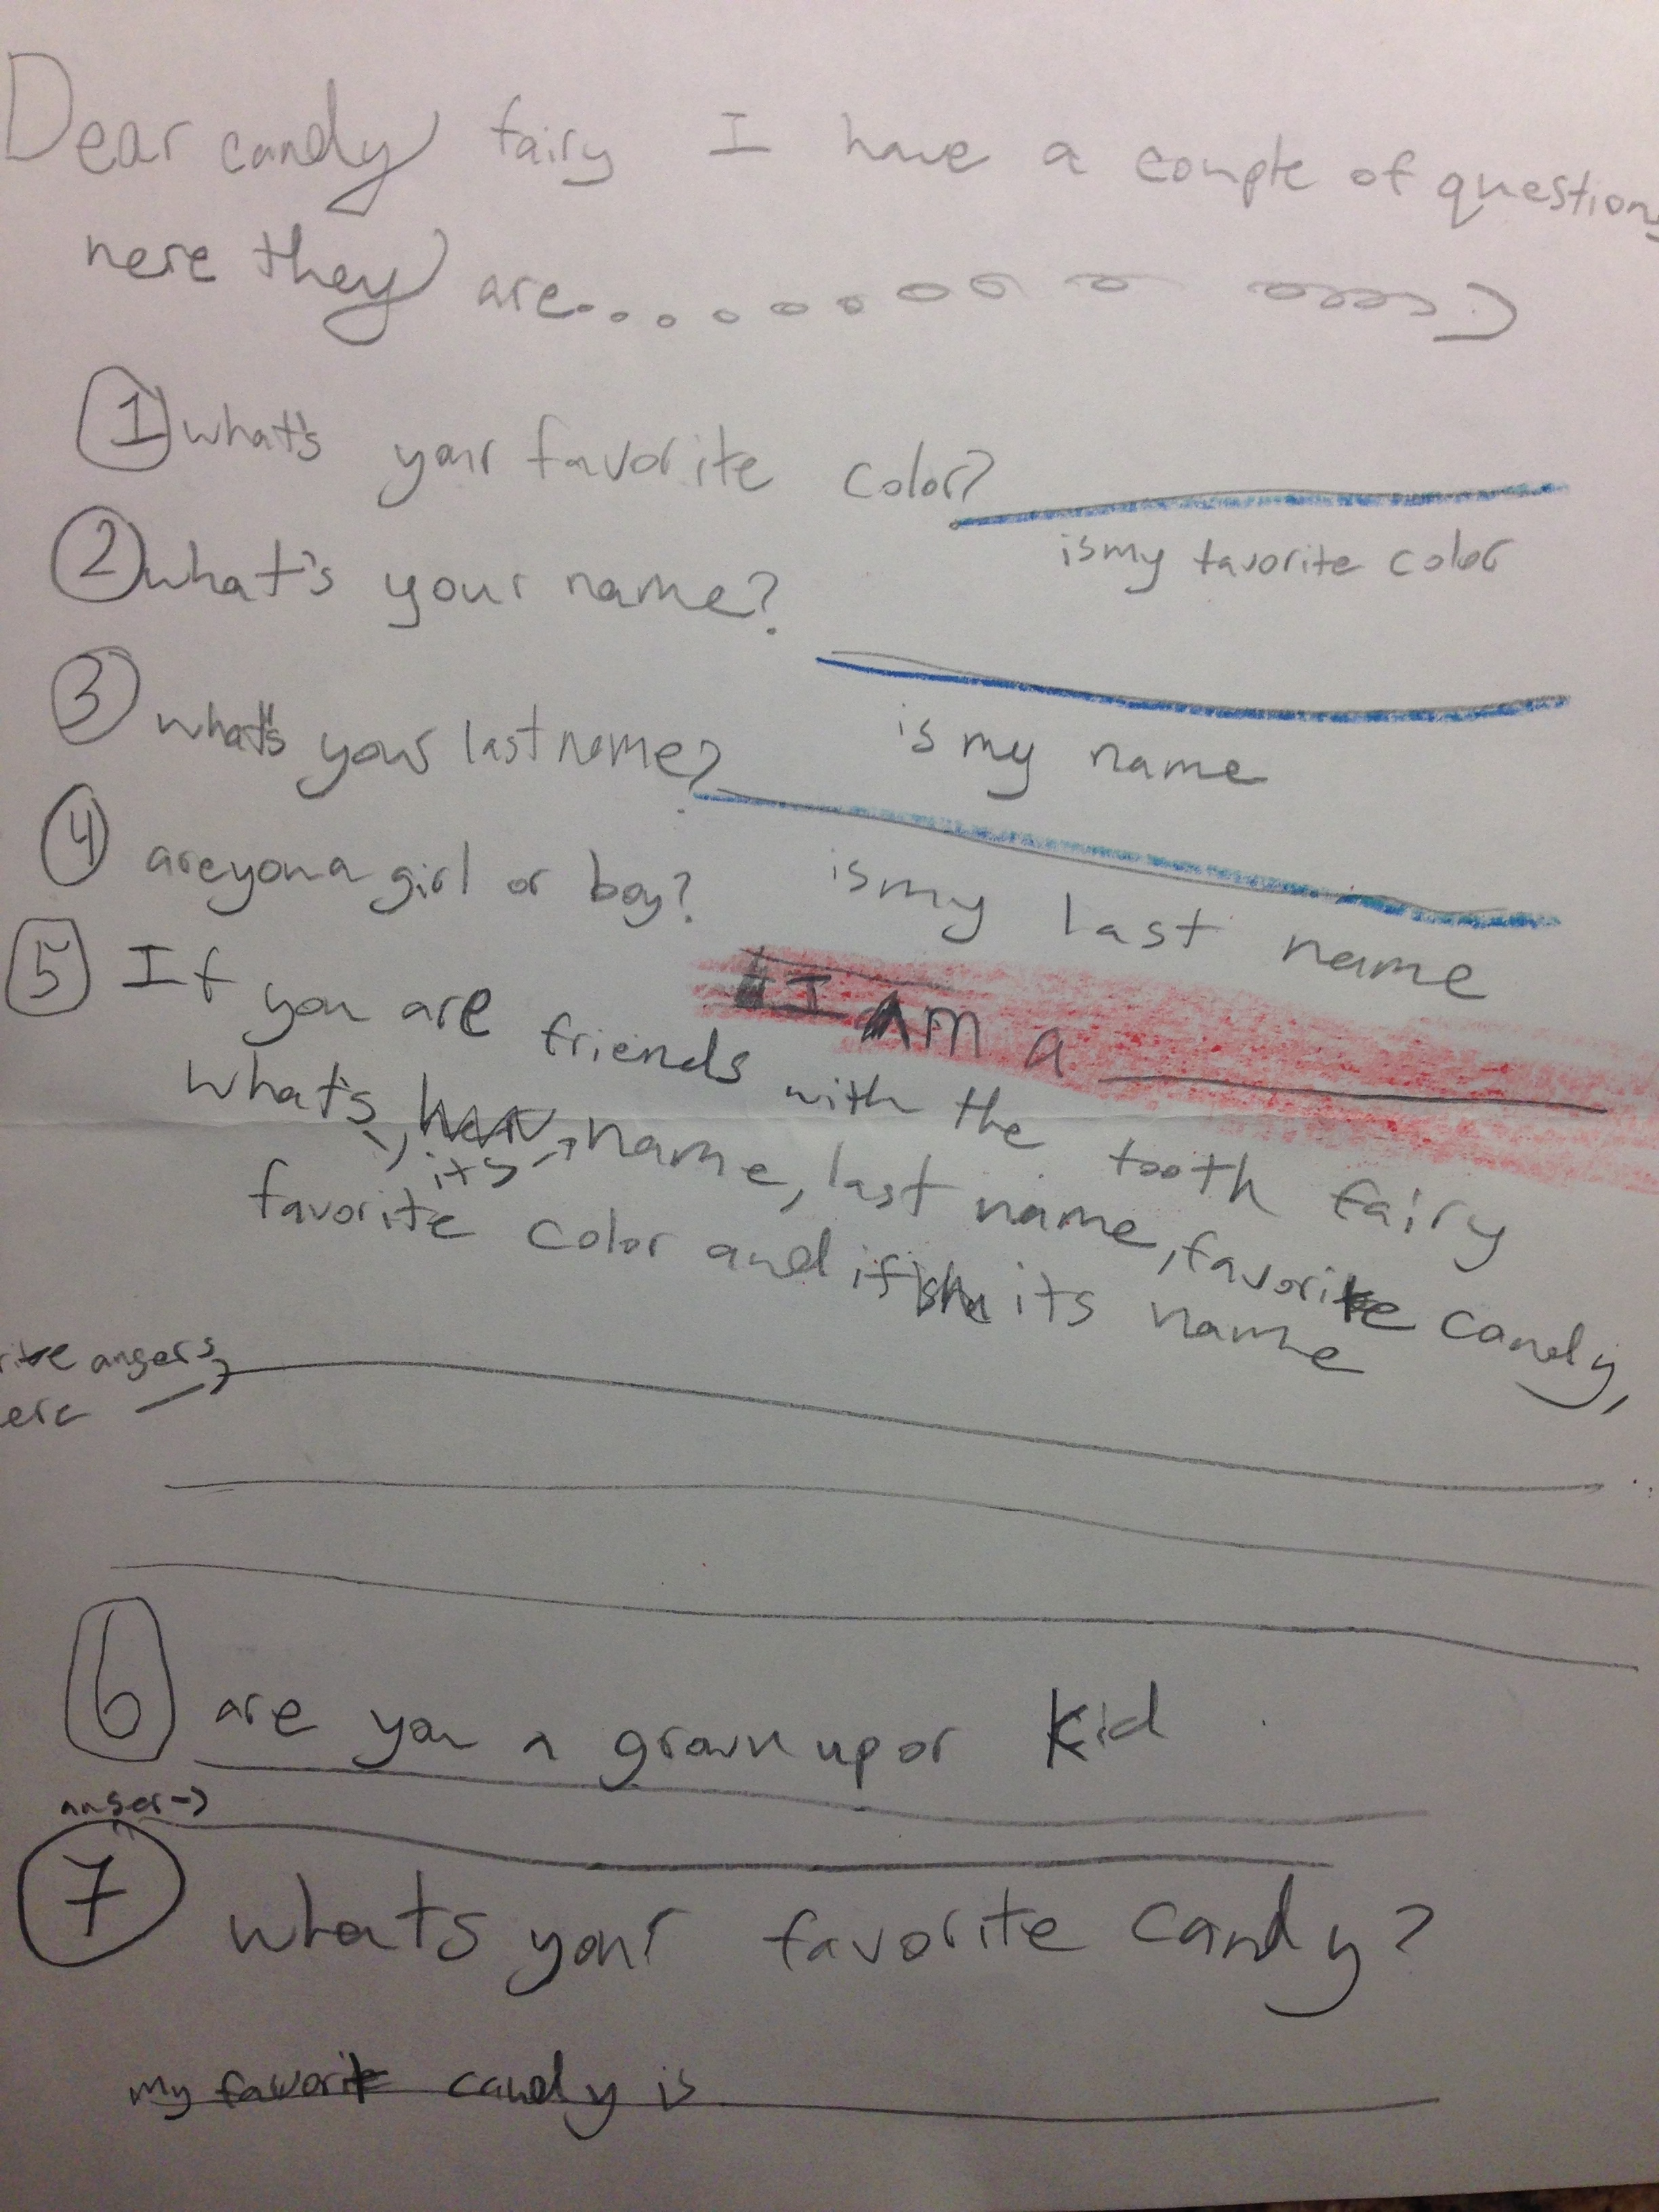 Dear candy fairy I have a couple of questions
here they are..........
1 what's your favorite color?
is my favorite color
2 what's your name?
is my name
3 what's your last name?
is my last name
4 are you a girl or boy?
I AM a
5 If you are friends with the tooth fairy
what's its name, last name, favorite candy,
favorite color and if its name
angers
6 are you a grown up or kid
anger
7 whats your favorite candy?
my favorite candy is